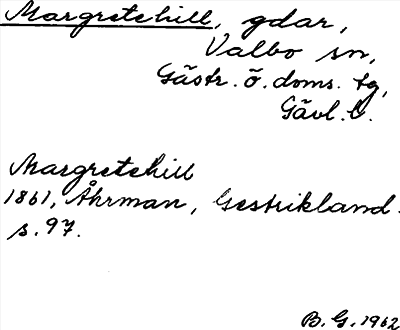 Margretehill, gdar,
Valbo sn,
Gästr. ö. doms. tg,
Gävl. l.
Margretehill
1861, Åhrman, Gestrikland.
s. 97.
B. G. 1962